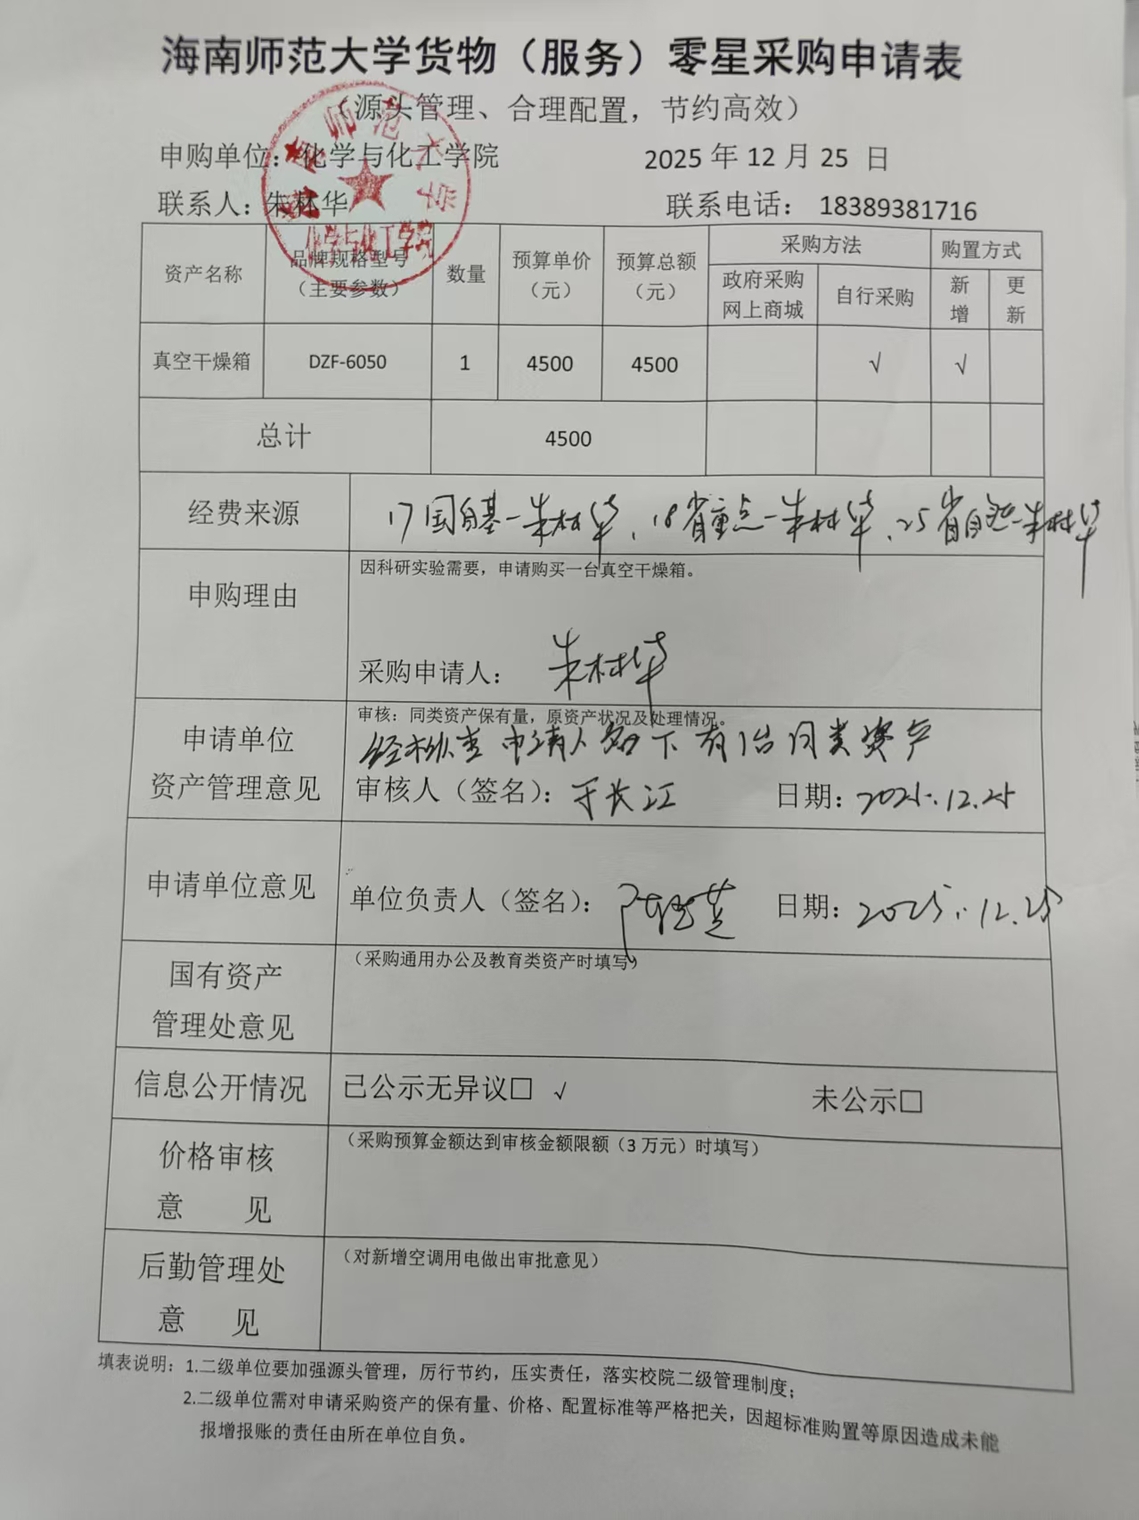 海南师范大学货物（服务）零星采购申请表
（源头管理、合理配置，节约高效）
申购单位：化学与化工学院 2025 年 12 月 25 日
联系人：朱林华 联系电话： 18389381716
海南师范大学
化学与化工学院
资产名称 品牌规格型号（主要参数） 数量 预算单价（元） 预算总额（元） 采购方法 购置方式
政府采购网上商城 自行采购 新增 更新
真空干燥箱 DZF-6050 1 4500 4500 √ √
总计 4500
经费来源 17国自基-朱林华、18省重点-朱林华、25省自然-朱林华
申购理由 因科研实验需要，申请购买一台真空干燥箱。
采购申请人： 朱林华
申请单位 审核：同类资产保有量，原资产状况及处理情况。
经核查申请人名下有1台同类资产
资产管理意见 审核人（签名）：于长江 日期：2025.12.25
申请单位意见 单位负责人（签名）： 日期：2025.12.25
国有资产 （采购通用办公及教育类资产时填写）
管理处意见
信息公开情况 已公示无异议□ √ 未公示□
价格审核 （采购预算金额达到审核金额限额（3 万元）时填写）
意 见
后勤管理处 （对新增空调用电做出审批意见）
意 见
填表说明：1.二级单位要加强源头管理，厉行节约，压实责任，落实校院二级管理制度；
2.二级单位需对申请采购资产的保有量、价格、配置标准等严格把关，因超标准购置等原因造成未能
报增报账的责任由所在单位自负。